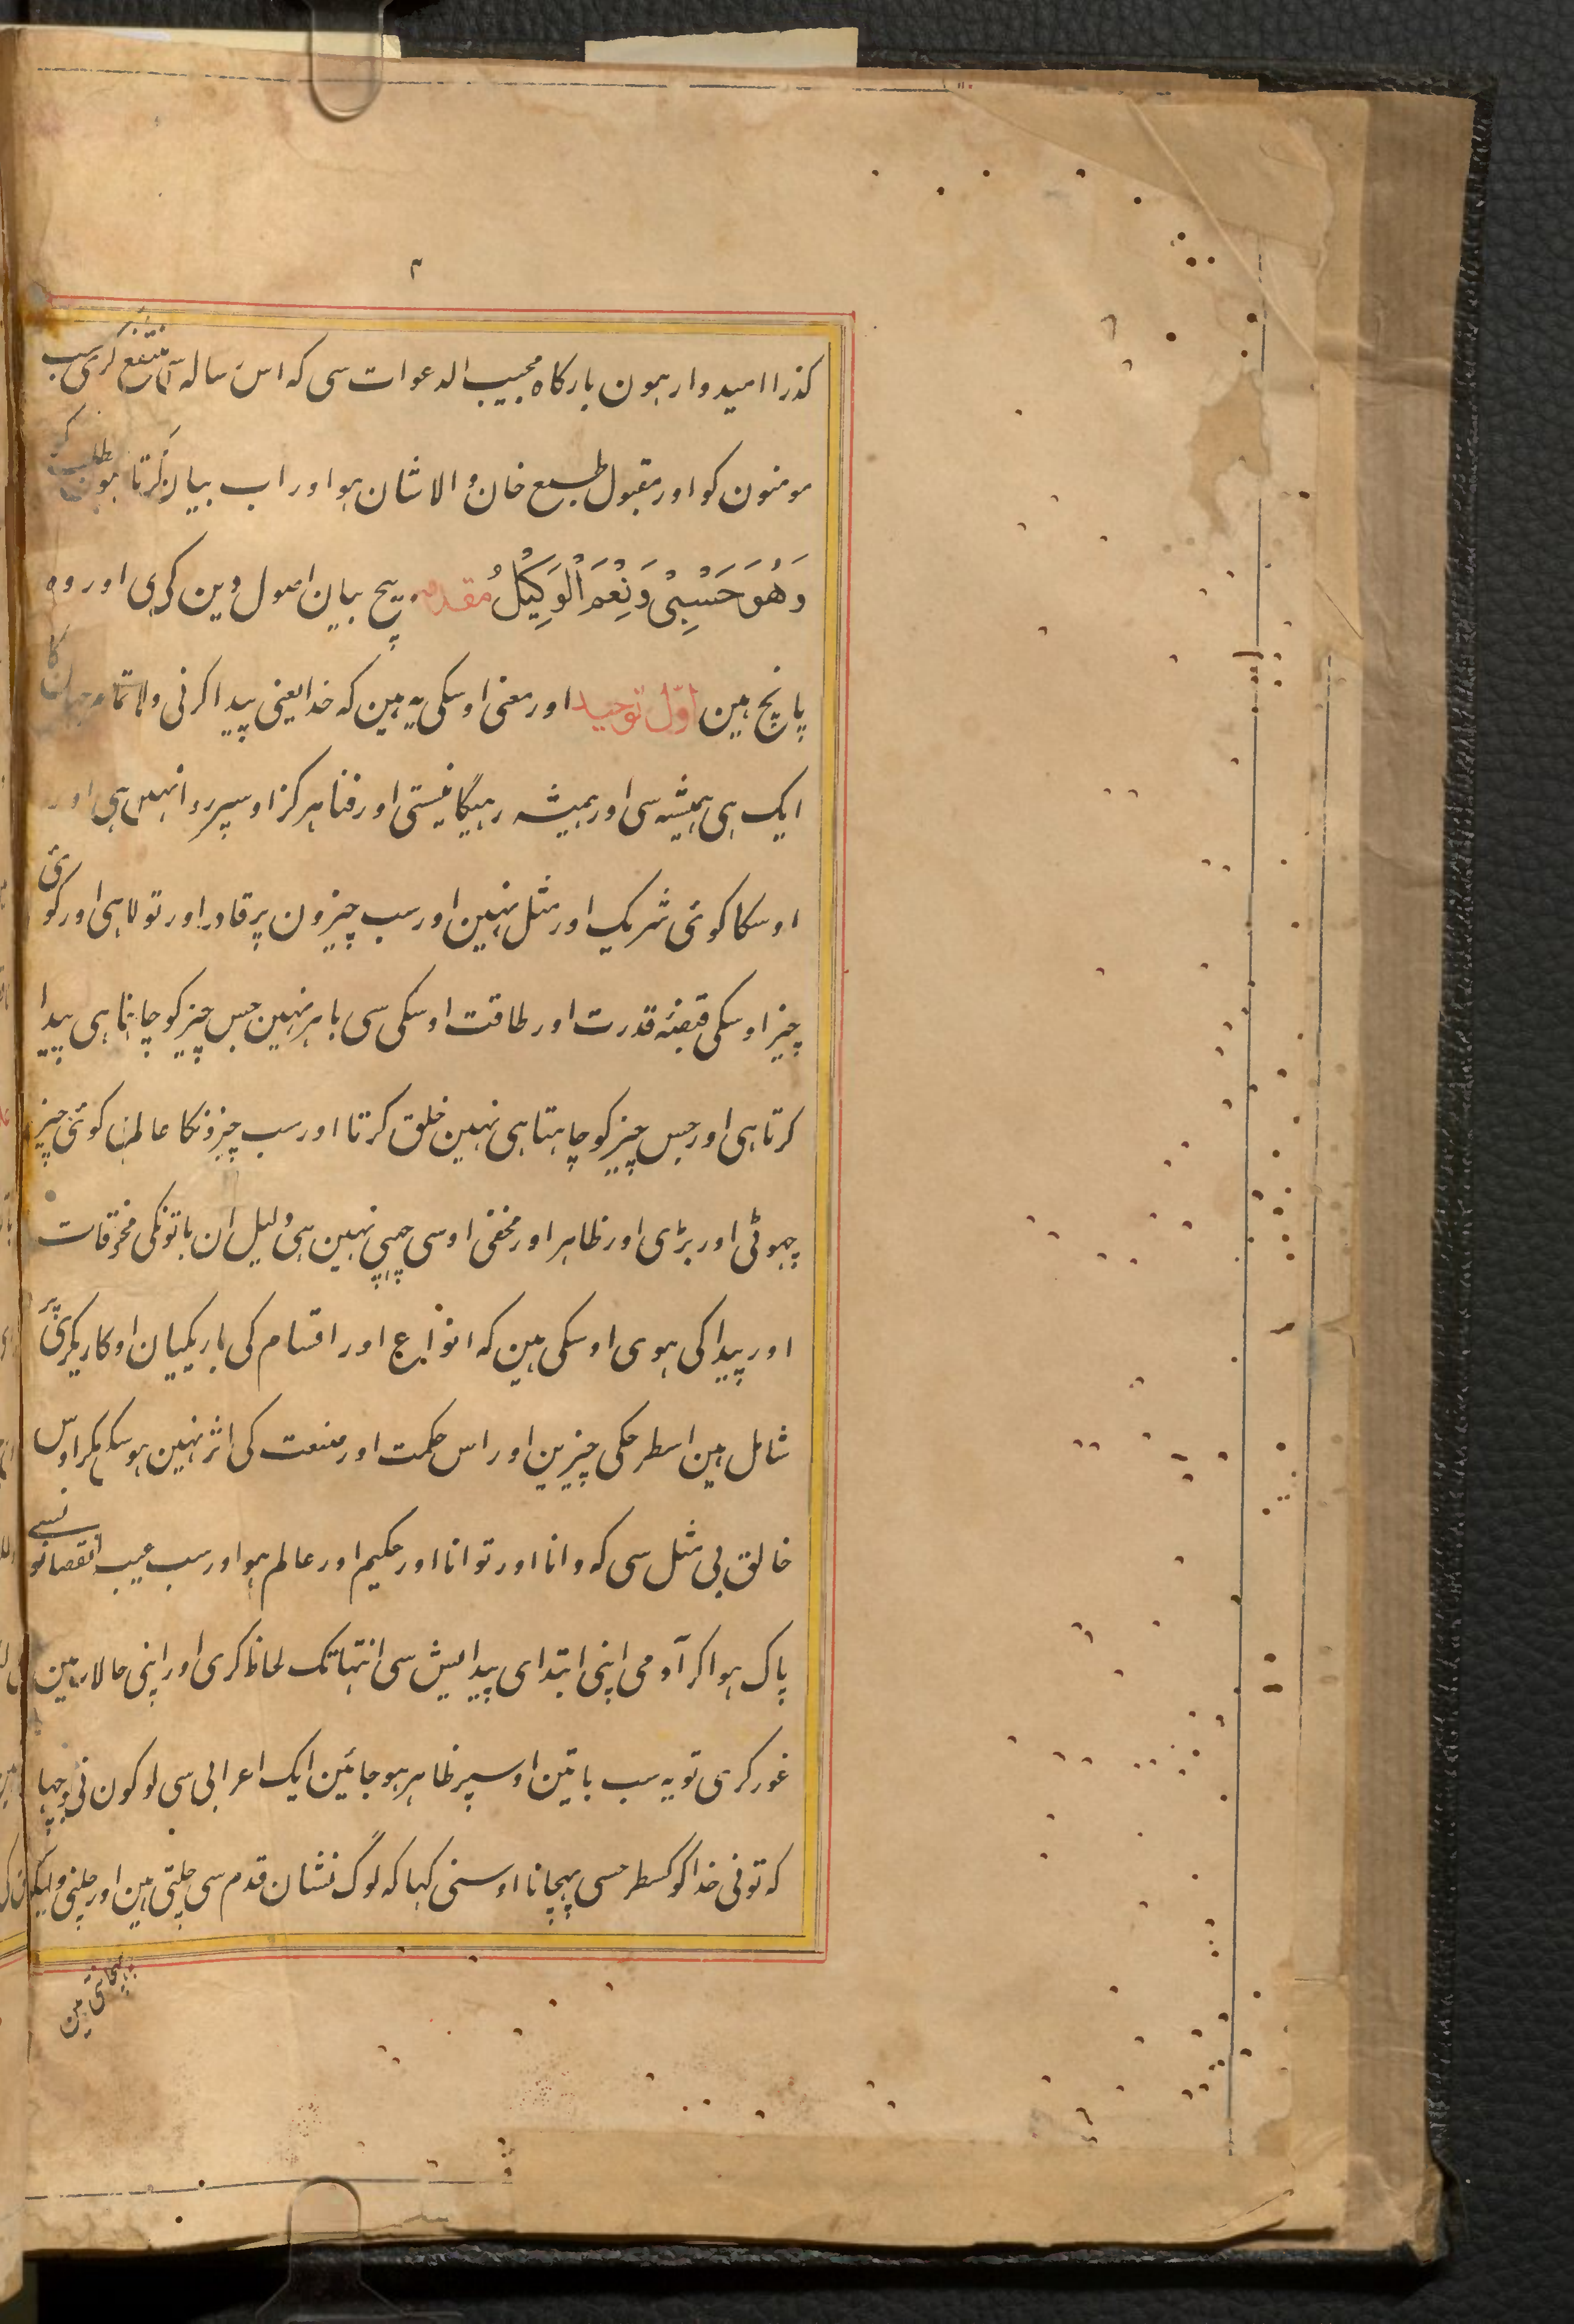 ۳
کذرا امیدوار ہون بارکاہ مجیب الدعوات سی کہ اس رسالہ سی منتفع کری سب
مومنون کو اور مقبول طبع خان والاشان ہو اور اب بیان کرتا ہون مطلب کو
وَهُوَ حَسْبِیْ وَنِعْمَ الْوَکِیْلُ مقدمہ بیچ بیان اصول دین کی ہی اور وہ
پانچ ہین اوّل توحید اور معنی اوسکی یہ ہین کہ خدا یعنی پیدا کرنی والا تمام جہان کا
ایک ہی ہمیشہ سی اور ہمیشہ رہیگا نیستی اور فنا ہرکز اوسپر روا نہین ہی اور
اوسکا کوئی شریک اور مثل نہین اور سب چیزون پر قادر اور توانا ہی اور کوئی
چیز اوسکی قبضۂ قدرت اور طاقت اوسکی سی باہر نہین جس چیز کو چاہتا ہی پیدا
کرتا ہی اور جس چیز کو چاہتا ہی نہین خلق کرتا اور سب چیزونکا عالم ہی کوئی چیز
چہوٹی اور بڑی اور ظاہر اور مخفی اوسی چہپی نہین ہی دلیل ان باتونکی مخلوقات
اور پیدا کی ہوی اوسکی ہین کہ انواع اور اقسام کی باریکیان اور کاریکری پر
شامل ہین اسطرحکی چیزین اور اس حکمت اور صنعت کی اثر نہین ہو سکتی مکر اوس
خالق بی مثل سی کہ دانا اور توانا اور حکیم اور عالم ہو اور سب عیب نقصانونسے
پاک ہو اکر آدمی اپنی ابتدای پیدایش سی انتہا تک لحاظ کری اور اپنی حالات مین
غور کری تو یہ سب باتین اوسپر ظاہر ہو جائین ایک اعرابی سی لوکون نی پوچہا
کہ تونی خدا کو کسطرحسی پہچانا اوسنی کہا کہ لوگ نشان قدم سی چلتی ہین اور چلنی والیکو
پہچانتی ہین